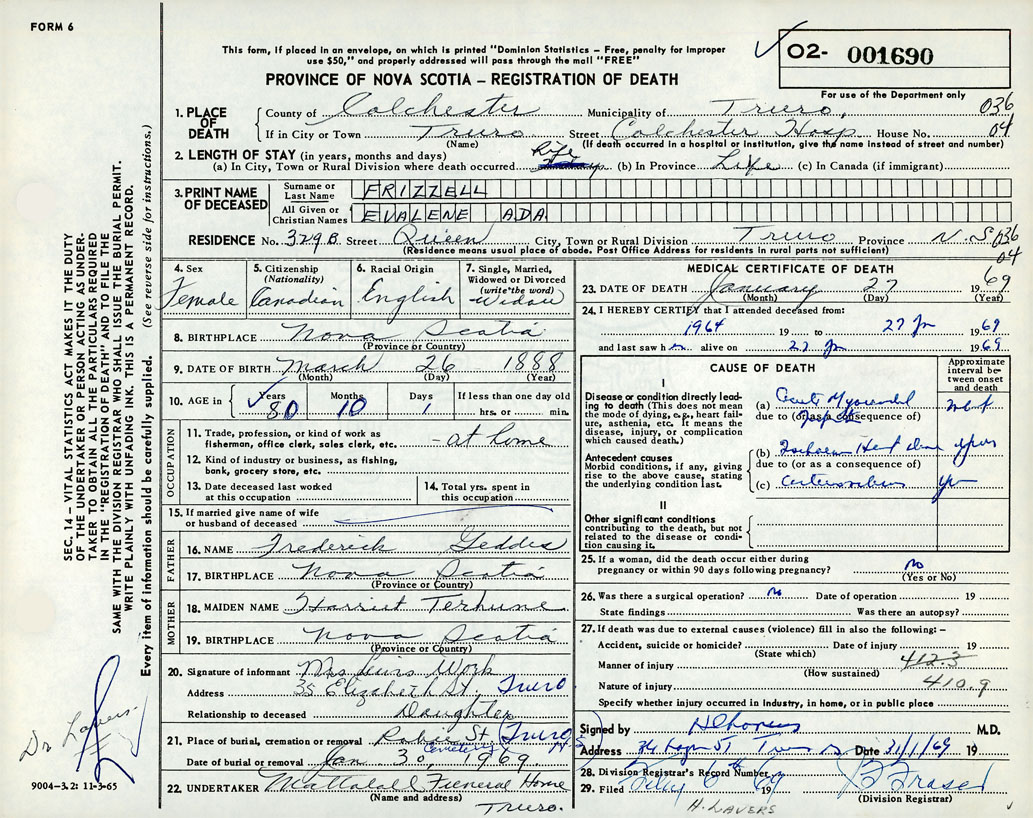 FORM 6
This form, if placed in an envelope, on which is printed "Dominion Statistics – Free, penalty for improper
use $50," and properly addressed will pass through the mail "FREE"
O2- 001690
For use of the Department only
PROVINCE OF NOVA SCOTIA – REGISTRATION OF DEATH
1. PLACE OF DEATH
County of Colchester Municipality of Truro, 036
If in City or Town Truro Street Colchester Hosp House No. 04
(Name) (If death occurred in a hospital or institution, give the name instead of street and number)
2. LENGTH OF STAY (in years, months and days)
(a) In City, Town or Rural Division where death occurred Life (b) In Province Life (c) In Canada (if immigrant)
3. PRINT NAME OF DECEASED
Surname or Last Name FRIZZELL
All Given or Christian Names EVALENE ADA
RESIDENCE No. 329B. Street Queen City, Town or Rural Division Truro Province N.S 036
(Residence means usual place of abode. Post Office Address for residents in rural parts not sufficient) 04
4. Sex Female
5. Citizenship (Nationality) Canadian
6. Racial Origin English
7. Single, Married, Widowed or Divorced (write the word) Widow
8. BIRTHPLACE Nova Scotia
(Province or Country)
9. DATE OF BIRTH March 26 1888
(Month) (Day) (Year)
10. AGE in Years 80 Months 10 Days 1 If less than one day old hrs. or min.
OCCUPATION
11. Trade, profession, or kind of work as
fisherman, office clerk, sales clerk, etc. - at home
12. Kind of industry or business, as fishing,
bank, grocery store, etc.
13. Date deceased last worked
at this occupation
14. Total yrs. spent in
this occupation
15. If married give name of wife
or husband of deceased
FATHER
16. NAME Frederick Geddes
17. BIRTHPLACE Nova Scotia
(Province or Country)
MOTHER
18. MAIDEN NAME Harriet Terhune
19. BIRTHPLACE Nova Scotia
(Province or Country)
20. Signature of informant Mrs Work
Address 35 Elizabeth St, Truro
Relationship to deceased Daughter
21. Place of burial, cremation or removal Robie St Cemetery Truro
Date of burial or removal Jan 30, 1969
22. UNDERTAKER Mattatall Funeral Home
(Name and address) Truro.
MEDICAL CERTIFICATE OF DEATH
23. DATE OF DEATH January 27 1969
(Month) (Day) (Year)
24. I HEREBY CERTIFY that I attended deceased from:
1964 19 to 27 Jan 1969
and last saw her alive on 27 Jan 1969
CAUSE OF DEATH
Approximate interval between onset and death
I
Disease or condition directly leading to death (This does not mean the mode of dying, e.g., heart failure, asthenia, etc. It means the disease, injury, or complication which caused death.)
(a) Acute Myocardial
due to (or as a consequence of)
Antecedent causes
Morbid conditions, if any, giving rise to the above cause, stating the underlying condition last.
(b) Heart
due to (or as a consequence of)
(c)
II
Other significant conditions
contributing to the death, but not related to the disease or condition causing it.
25. If a woman, did the death occur either during
pregnancy or within 90 days following pregnancy? No
(Yes or No)
26. Was there a surgical operation? No Date of operation 19
State findings Was there an autopsy?
27. If death was due to external causes (violence) fill in also the following: –
Accident, suicide or homicide? Date of injury 19
(State which)
Manner of injury 412.3
(How sustained)
Nature of injury 410.9
Specify whether injury occurred in industry, in home, or in public place
Signed by M.D.
Address Truro Date 31/1/69 19
28. Division Registrar's Record Number
29. Filed 6th 1969 Fraser
(Division Registrar)
H. LAVERS
SEC. 14 – VITAL STATISTICS ACT MAKES IT THE DUTY
OF THE UNDERTAKER OR PERSON ACTING AS UNDER-
TAKER TO OBTAIN ALL THE PARTICULARS REQUIRED
IN THE "REGISTRATION OF DEATH" AND TO FILE THE
SAME WITH THE DIVISION REGISTRAR WHO SHALL ISSUE THE BURIAL PERMIT.
WRITE PLAINLY WITH UNFADING INK. THIS IS A PERMANENT RECORD.
Every item of information should be carefully supplied. (See reverse side for instructions.)
Dr Lavers
9004-3.2: 11-3-65